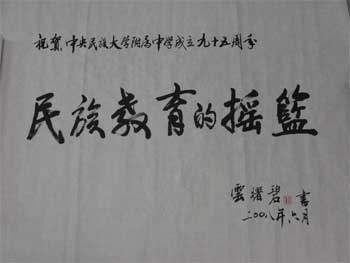 祝贺中央民族大学附属中学成立九十五周年
民族教育的摇篮
雲曙碧 書
二00八年六月